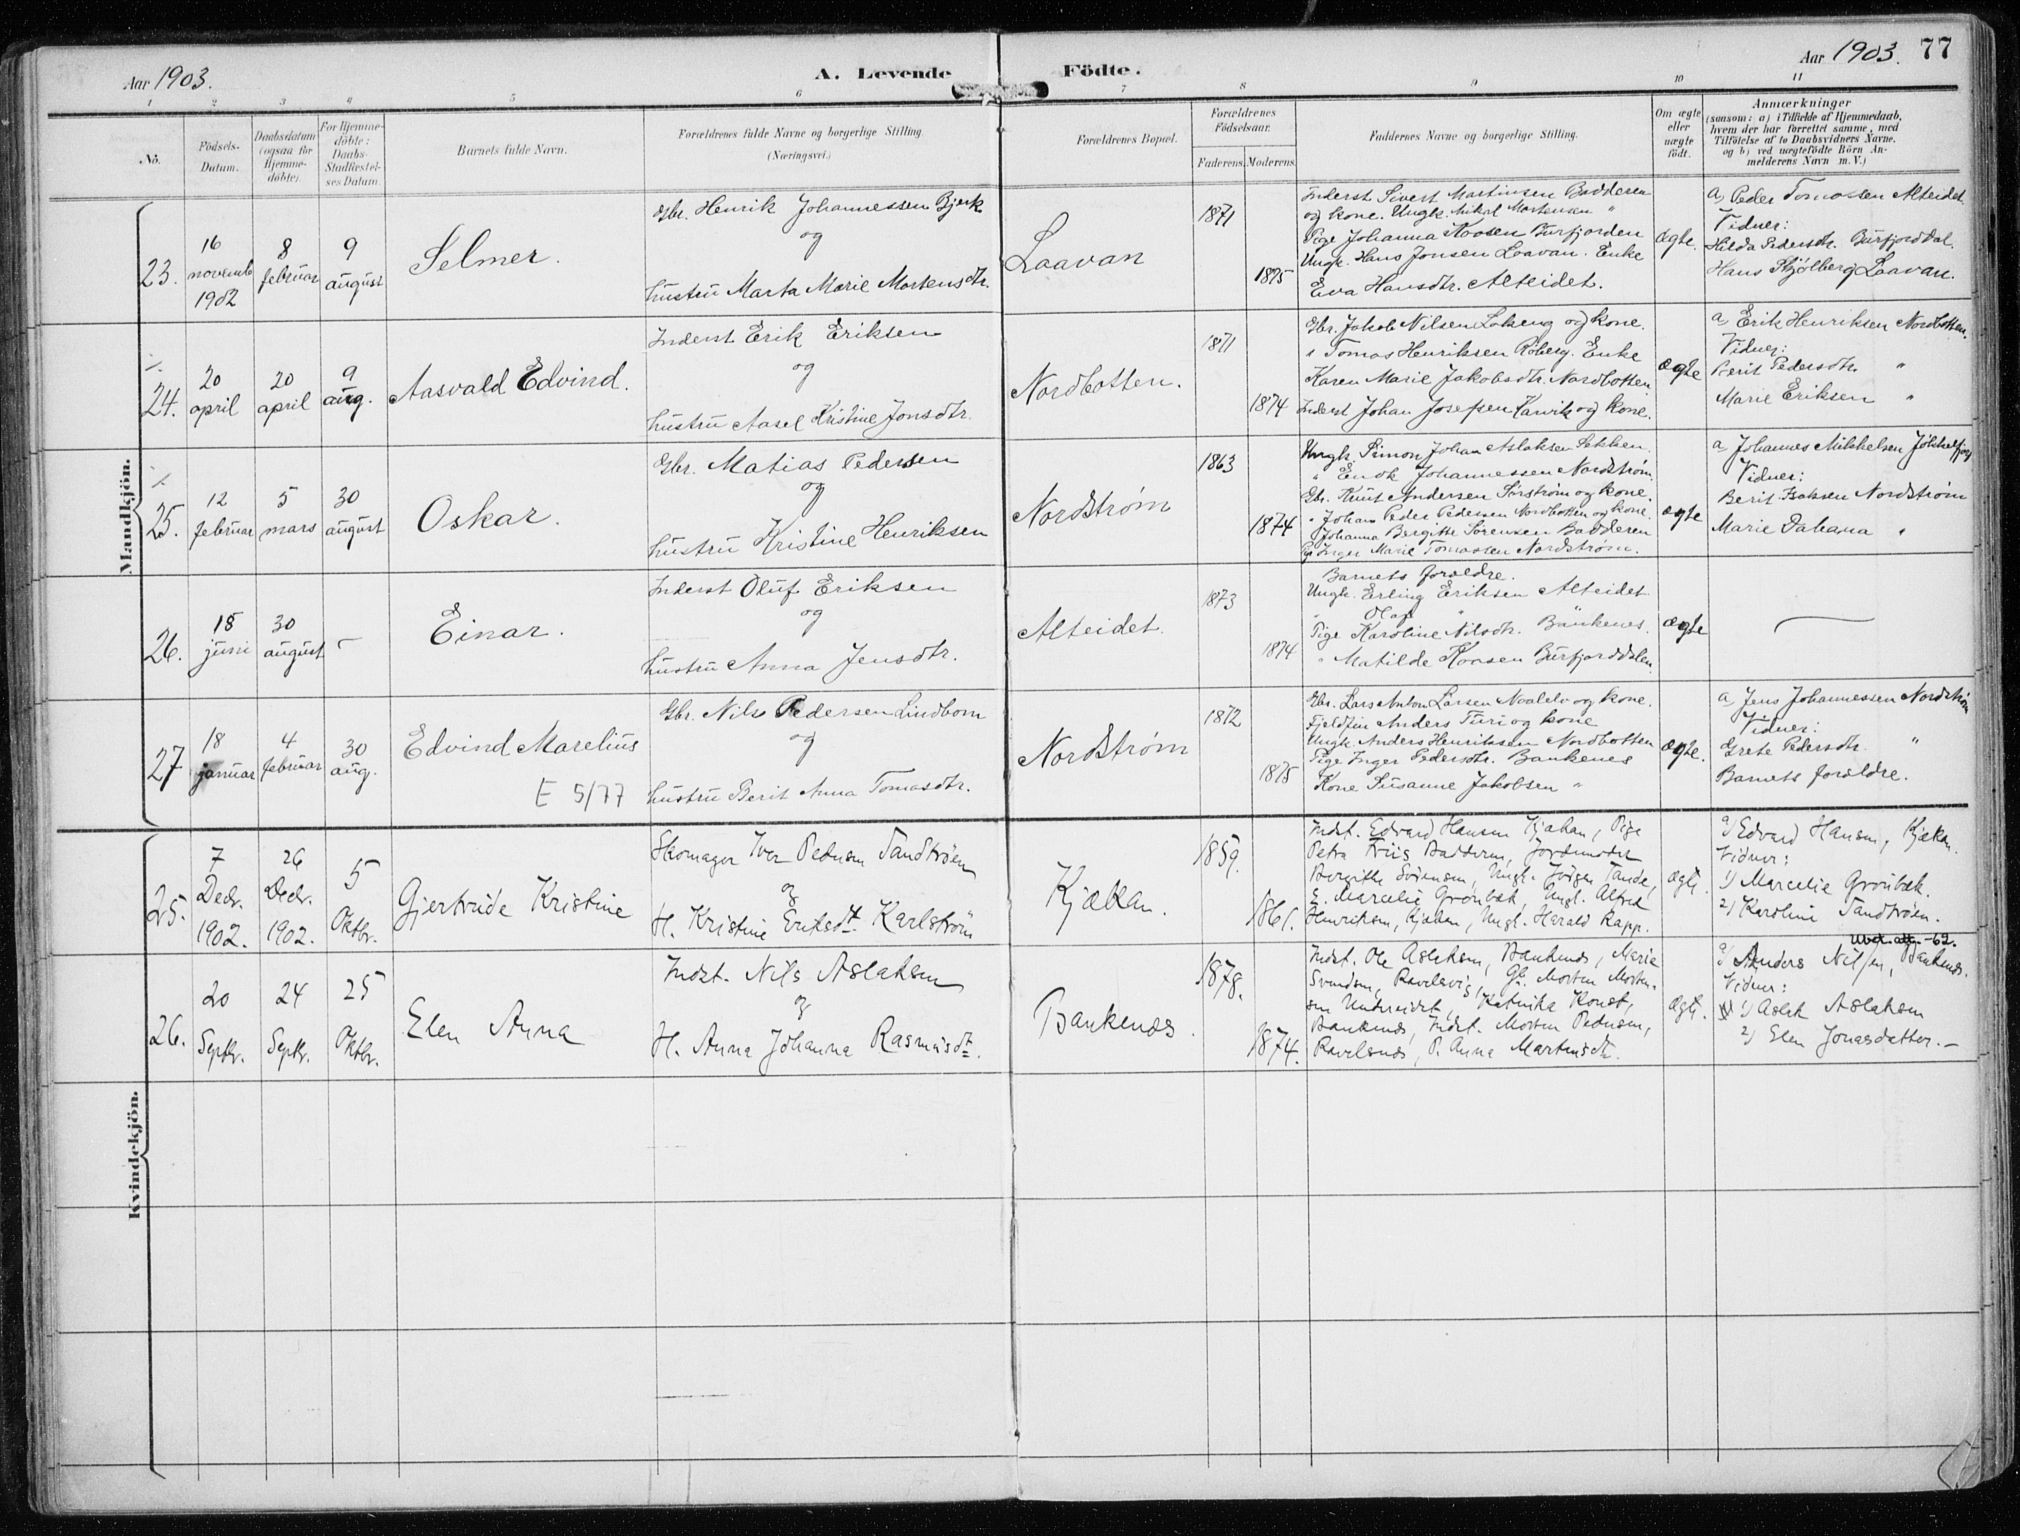 Aar 1903.
A. Levende Födte.
Aar 1903. 77
1 2 3 4 5 6 7 8 9 10 11
No.
Födsels-
Datum.
Daabsdatum
(ogsaa for
Hjemme-
döbte).
For Hjemme-
döbte:
Daabs-
Stadfæstel-
ses Datum.
Barnets fulde Navn.
Forældrenes fulde Navne og borgerlige Stilling
(Næringsvei.)
Forældrenes Bopæl.
Forældrenes
Födselsaar.
Faderens. Moderens.
Faddernes Navne og borgerlige Stilling.
Om ægte
eller
uægte
födt.
Anmærkninger
(saasom: a) i Tilfælde af Hjemmedaab,
hvem der har forrettet samme, med
Tilföielse af to Daabsvidners Navne,
og b) ved uægtefödte Börn An-
melderens Navn m. V.)
Mandkjön.
23.
16
novemb
1902
8
februar
9
august
Selmer.
Gbr. Henrik Johannessen Bjerk
og
hustru Marta Marie Mortensdtr.
Laavan
1871
1875
Inderst Sivert Martinsen Badderen
og kone. Ungk. Nikol Mortensen "
Pige Johanna Noosen Burfjorden
Ungk. Hans Jonsen Laavan. Enke
Eva Hansdtr. Alteidet.
ægte.
a, Peder Tomassen Alteidet.
Vidner:
Hilda Pedersdtr. Burfjorddal.
Hans Skjølberg Laavan.
24.
20
april
20
april
9
aug.
Aasvald Edvind.
Inderst Erik Eriksen
og
hustru Aasel Kristine Jonsdtr.
Nordbotten.
1871
1874
Gbr. Jakob Nilsen Lökeng og kone.
" Tomas Henriksen Röberg. Enke
Karen Marie Jakobsdtr. Nordbotten
Inderst Johan Josefsen Karvik og kone.
ægte
a, Erik Henriksen Nordbotten.
Vidner:
Berit Pedersdtr. "
Marie Eriksen "
25.
12
februar
5
mars
30
august
Oskar.
Gbr. Matias Pedersen
og
hustru Kristine Henriksen
Nordstrøm
1863
1874
Ungk. Simon Johan Aslaksen Sekken
" Enok Johannessen Nordstrøm
Gbr. Knut Andersen Sörstrøm og kone.
" Johan Peder Pedersen Nordbotten og kone.
Johanna Bergitte Sörensen Badderen
Pg. Inger Marie Tomassen Nordstrøm.
ægte
a, Johannes Mikkelsen Jökkelfjord
Vidner:
Berit Isaksen Nordstrøm
Marie Dahana "
26.
18
juni
30
august
-
Einar.
Inderst Oluf Eriksen
og
hustru Anna Jensdtr.
Alteidet.
1873
1874
Barnets forældre.
Ungk. Erling Eriksen Alteidet
" Olaf "
Pige Karoline Nilsdtr. Bankenes.
" Matilde Koosen Burfjorddalen
ægte
27
18
januar
4
februar
30
aug.
Edvind Marelius
E 5/77
Gbr. Nils Pedersen Lindbom
og
hustru Berit Anna Tomasdtr.
Nordstrøm
1872
1875
Gbr. Lars Anton Larsen Noalelv og kone.
Fjeldfin Anders Turi og kone
Ungk. Anders Henriksen Nordbotten
Pige Inger Pedersdtr. Bankenes
Kone Susanne Jakobsen "
ægte.
a, Jens Johannessen Nordstrøm
Vidner:
Grete Pedersdtr. "
Barnets forældre.
Kvindekjön.
25.
7
Decbr.
1902.
26
Decbr.
1902.
5
Oktbr.
Gjertrude Kristine
Skomager Iver Pedersen Tandtröen
og
H. Kristine Eriksdt. Karlström
Kjækan.
1859.
1861.
Indst. Edvard Hansen Kjækan, Pige
Petra Friis Badderen, Jordemoder
Bergitte Sörensen, Ungk. Jörgen Tande,
E. Marcelie Grönbæk, Ungk. Alfred
Henriksen, Kjækan, Ungk. Harald Rapp.
ægte.
a) Edvard Hansen, Kjækan.
Vidner:
1) Marcelie Grönbæk.
2) Karoline Tandtröen.
Utst. att. -62.
26.
20
Septbr.
24
Septbr.
25
Oktbr.
Elen Anna
Indst. Nils Aslaksen
og
H. Anna Johanna Rasmusdt.
Bankenæs.
1878.
1874.
Indst. Ole Aslaksen, Bankenæs, Marie
Svendsen, Ravelsvig, Gb. Morten Morten-
sen Undereidet, Katrika Konst,
Bankenæs, Indst. Morten Pedersen,
Ravelsnæs, P. Anna Martinsdtr.
ægte.
a) Anders Nilsen, Bankenæs.
Vidner:
1) Aslak Aslaksen
2) Elen Jonasdatter.-